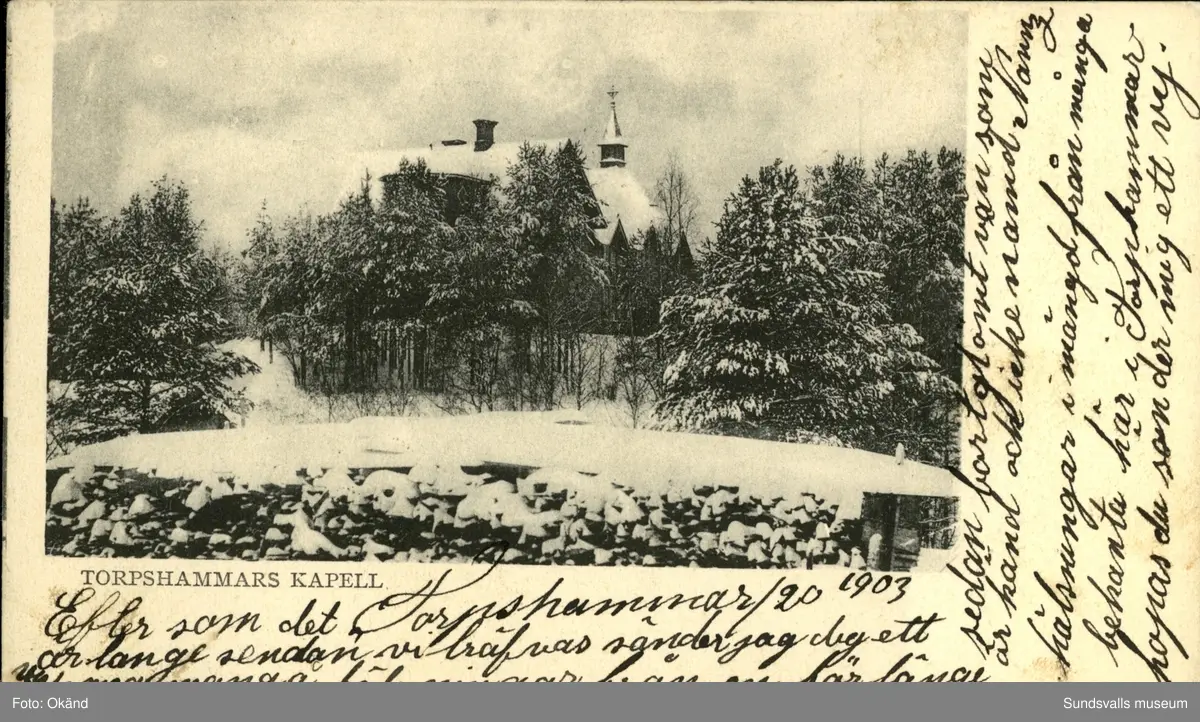 TORPSHAMMARS KAPELL
Torpshammar / 20 1903
Efler som det
är lange sendan vi träfvas sänder jag dig ett
från en här länge
sedan bortglömt vän som
är känd och icke nämnd Namn
hälsningar i mängd från många
bekanta här i Torpshammar
hopas du sänder mig ett vy.
Foto: Okänd
Sundsvalls museum